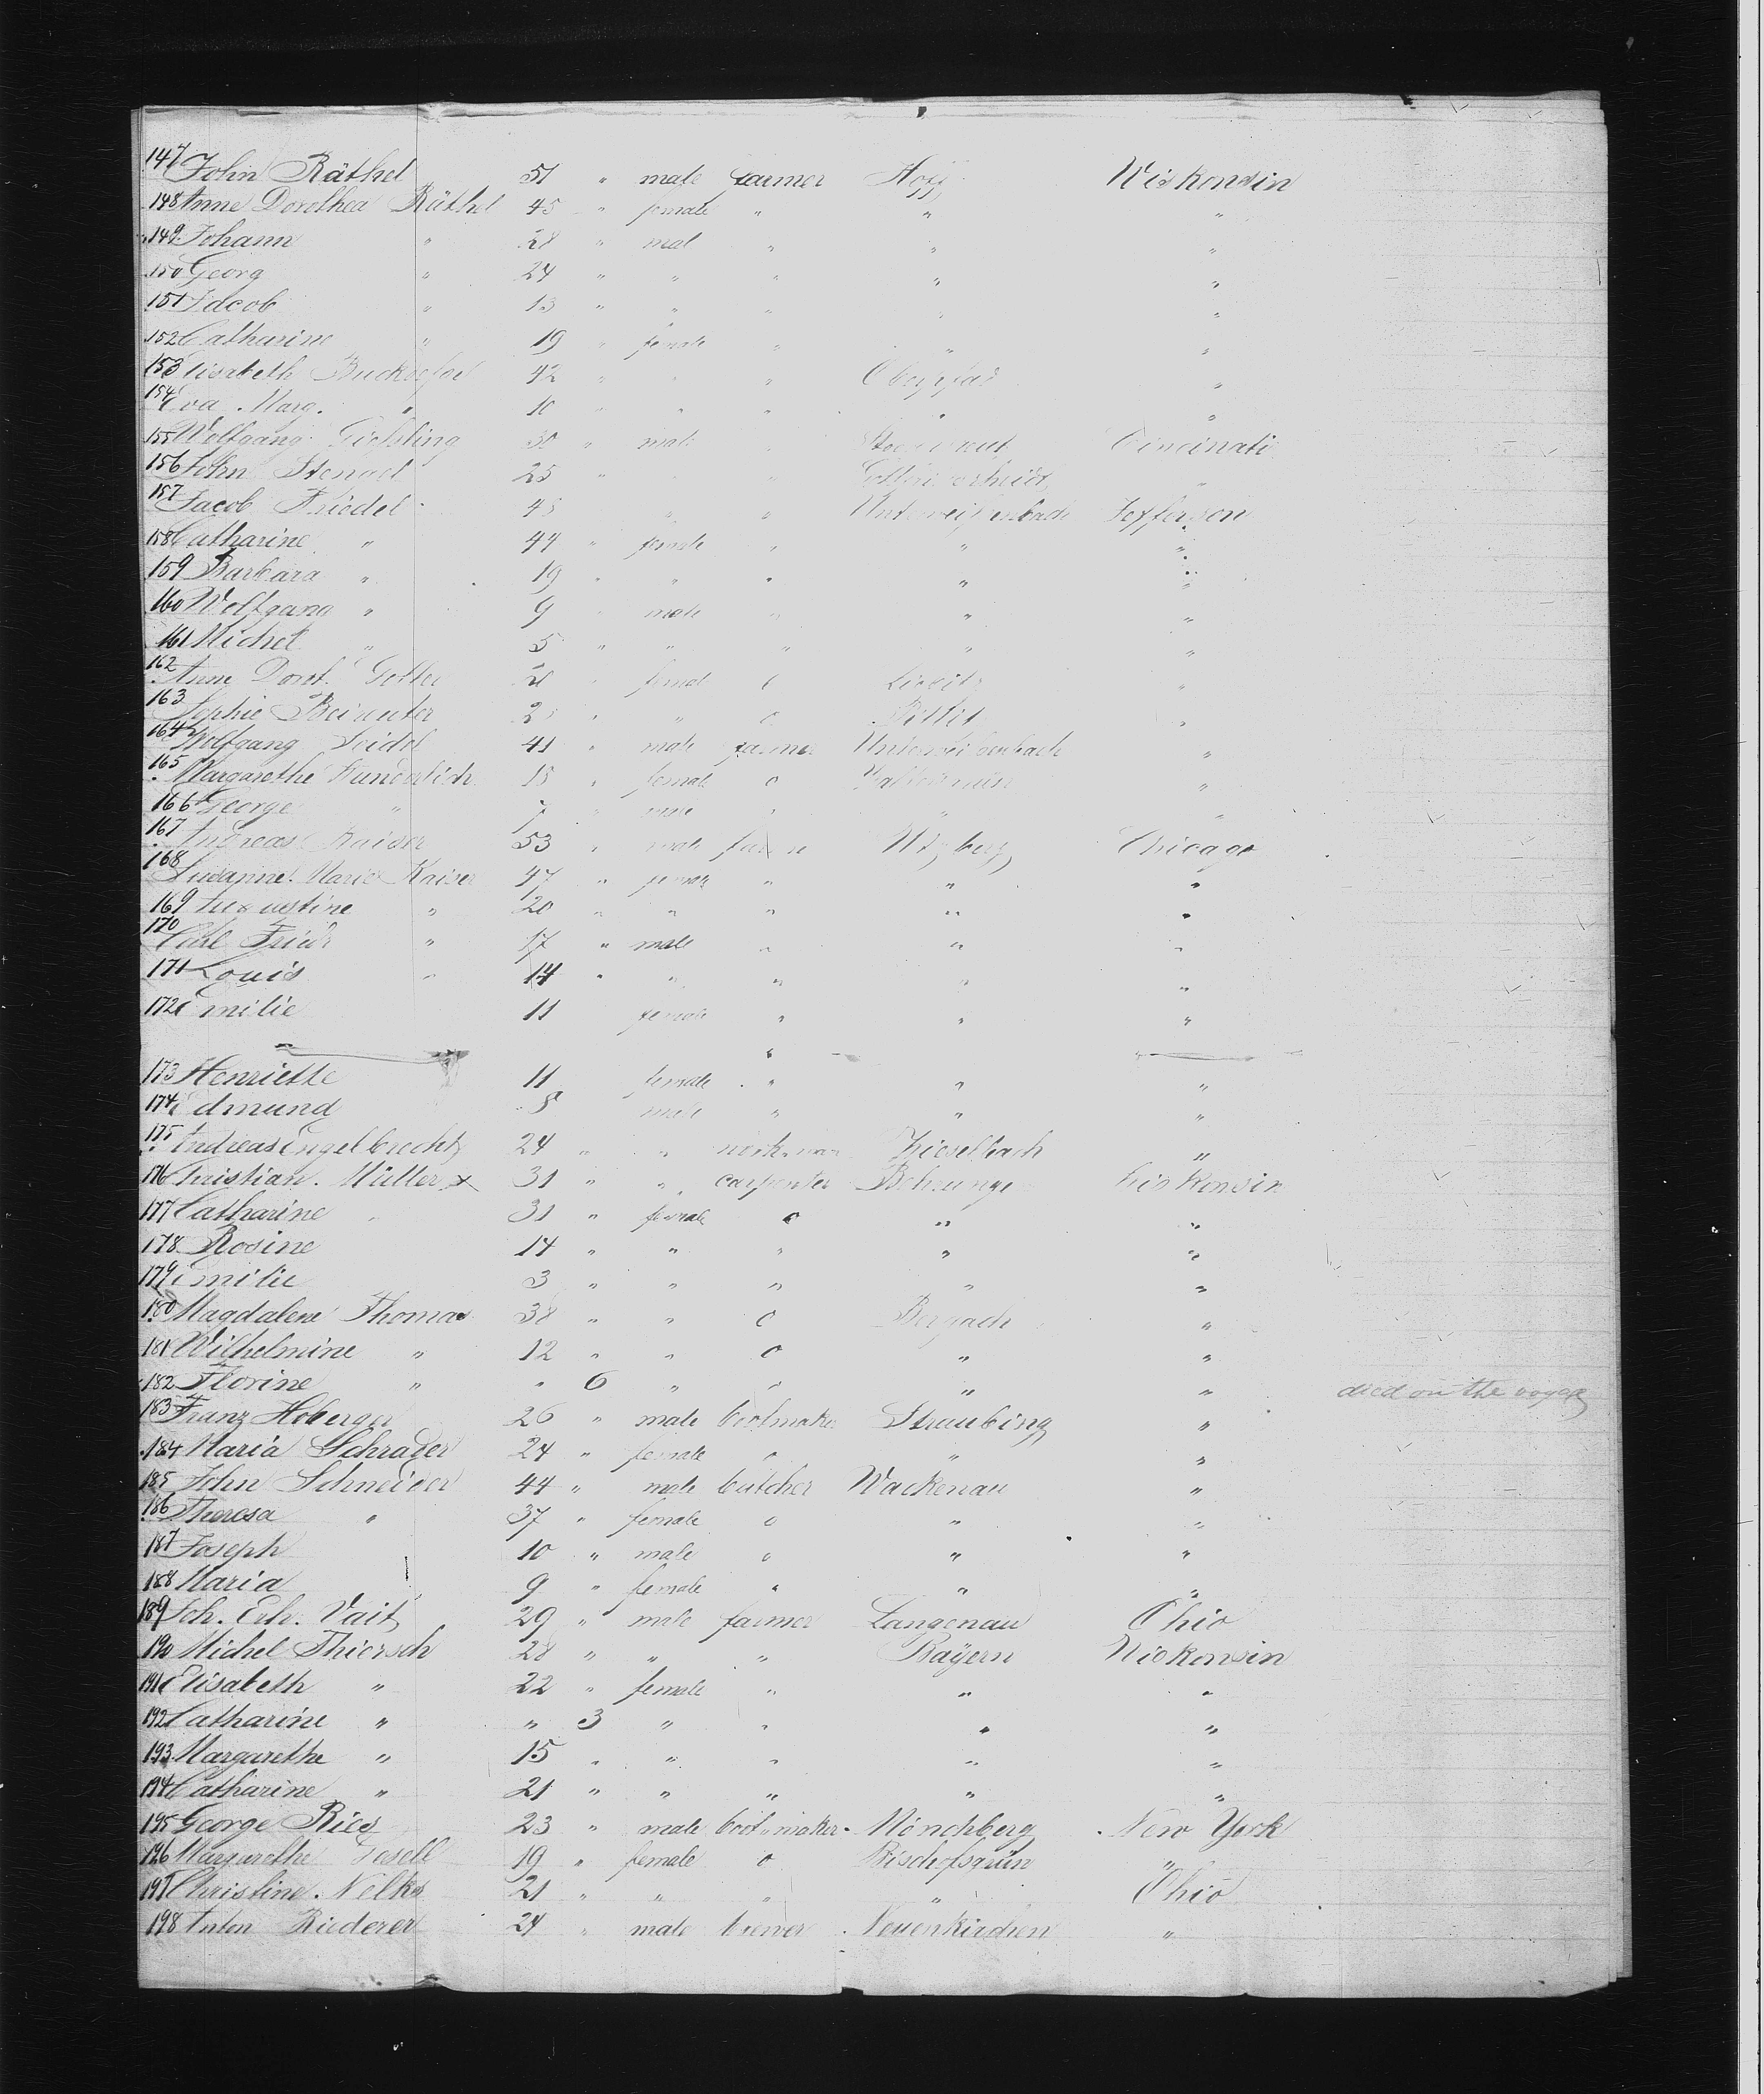 147 John Räthel 51 " male farmer Hof Wiskonsin
148 Anne Dorothea Räthel 45 " female " " "
149 Johann " 28 " mal " " "
150 Georg " 24 " " " " "
151 Jacob " 13 " " " " "
152 Catharine " 19 " female " " "
153 Elisabeth 42 " " " "
154 Eva Marg. " 10 " " " " "
155 Wolfgang 30 " male " Cincinati
156 John Stengel 25 " " " "
157 Jacob Friedel 45 " " Jefferson
158 Catharine " 44 " female " " "
159 Barbara " 19 " " " " "
160 Wolfgang " 9 " male " " "
161 Michel " 5 " " " " "
162 Anne Dorot. " femal "
163 Sophie " " o "
164 Wolfgang Seidel 41 " male farmer "
165 Margarethe " female o "
166 George " 7 " "
167 Andreas Kaiser 53 " male Chicago
168 Susanne Marie Kaiser 47 " female " " "
169 Augustine " 20 " " " " "
170 Carl Friedr " 17 " male " " "
171 Louis " 14 " " " " "
172 Emilie 11 female " " "
173 Henriette 11 female " " "
174 Edmund 8 male " " "
175 Andreas Engelbrecht 24 " " workman Zieselbach "
176 Christian Müller x 31 " " carpenter Wiskonsin
177 Catharine " 31 " female o " "
178 Rosine 14 " " " " "
179 Emilie 3 " " " " "
180 Magdalene Thomas 38 " " o "
181 Wilhelmine " 12 " " o " "
182 Florine " " 6 " " " " died on the voyage
183 Franz Hoberger 26 " male bootmaker Straubing "
184 Maria Schrader 24 " female o " "
185 John Schneider 44 " male butcher Wackenau "
186 Theresa " 37 " female o " "
187 Joseph 10 " male o " "
188 Maria 9 " female " " "
189 Joh. Erh. Vait 29 " male farmer Langenau Ohio
190 Michel Thiersch 28 " " " Bayern Wiskonsin
191 Elisabeth " 22 " female " " "
192 Catharine " " 3 " " " "
193 Margarethe " 15 " " " " "
194 Catharine " 21 " " " " "
195 George Ries 23 " male bootmaker Mönchberg New York
196 Margarethe 19 " female o Bischofsgrün "
197 Christine 21 " " " " Ohio
198 Anton Riederer 24 " male brewer Neuenkirchen "